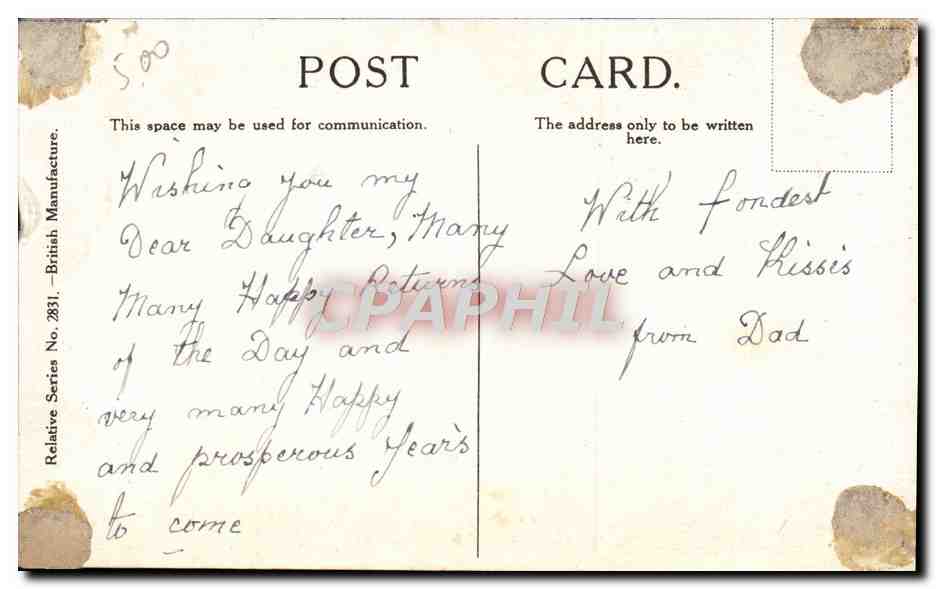 5.00
POST CARD.
This space may be used for communication.
The address only to be written
here.
Relative Series No. 2831. —British Manufacture.
Wishing you my
Dear Daughter, Many
Many Happy Returns
of the Day and
very many Happy
and prosperous Year's
to come
With fondest
Love and Kisses
from Dad
CPAPHIL